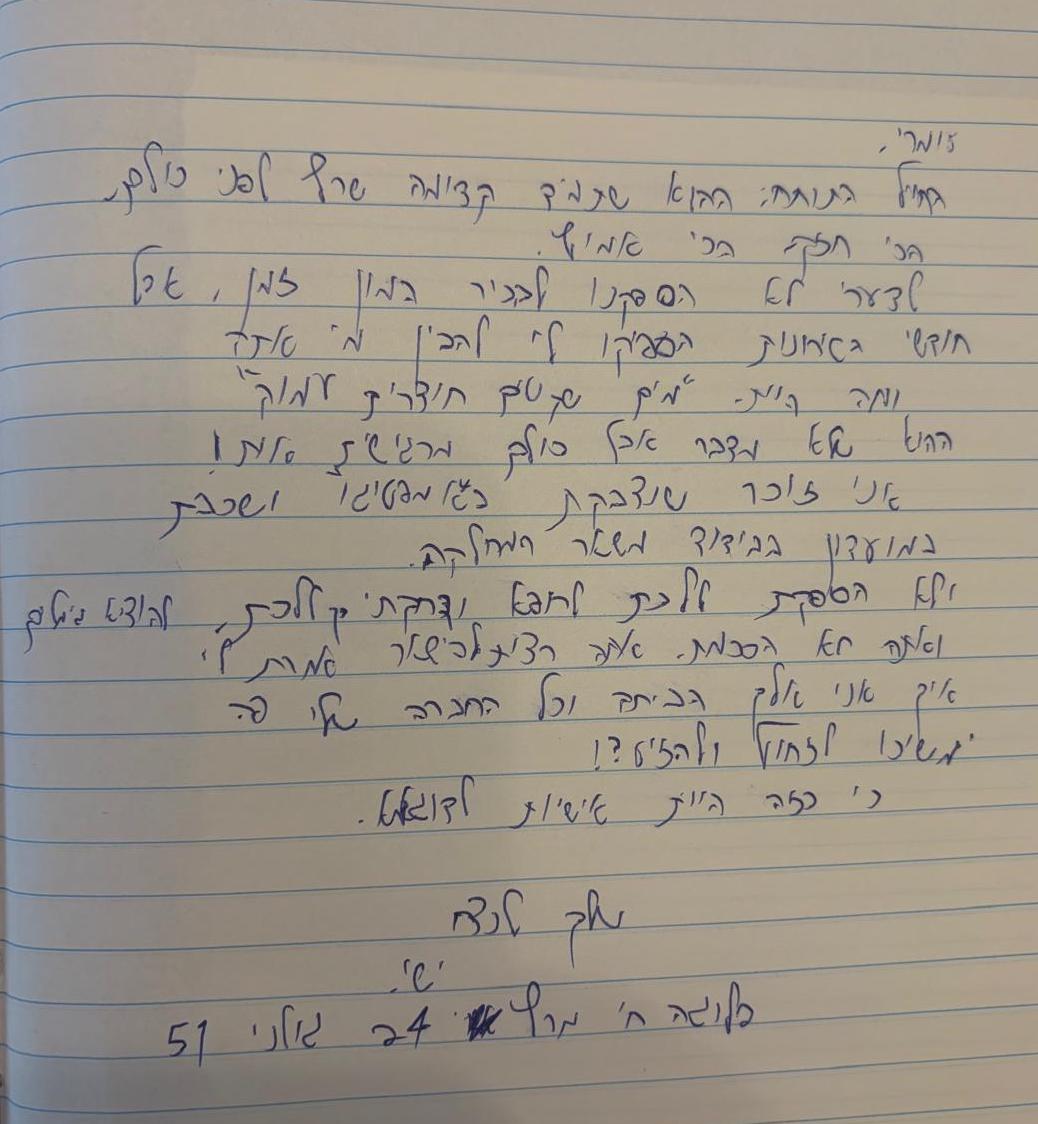 זומר'.
החייל התותח, ההוא שתמיד קדימה שרץ לפני כולם,
הכי חזק הכי אמיץ.
לצערי לא הספקנו להכיר המון זמן, אבל
חודשי האימונות הספיקו לי להבין מי אתה
ומה היית. "מים שקטים חודרים עמוק"
ההוא שלא מדבר אבל כולם מרגישים אותו!
אני זוכר שנדבקת באימפטיגו ושכבת
במועדון בבידוד משאר המחלקה.
ולא הספקת ללכת לרופא וצחקתי ללכת, להוציא גימלים
ואתה לא הסכמת. אתה רצית להישאר אמרת לי
איך אני אלך הביתה וכל החברה שלי פה
ימשיכו לזחול ולהזיע?!
כי כזה היית אישיות לדוגמא.
שלך לנצח
ישי.
פלוגה ח' מרץ 24 גולני 51